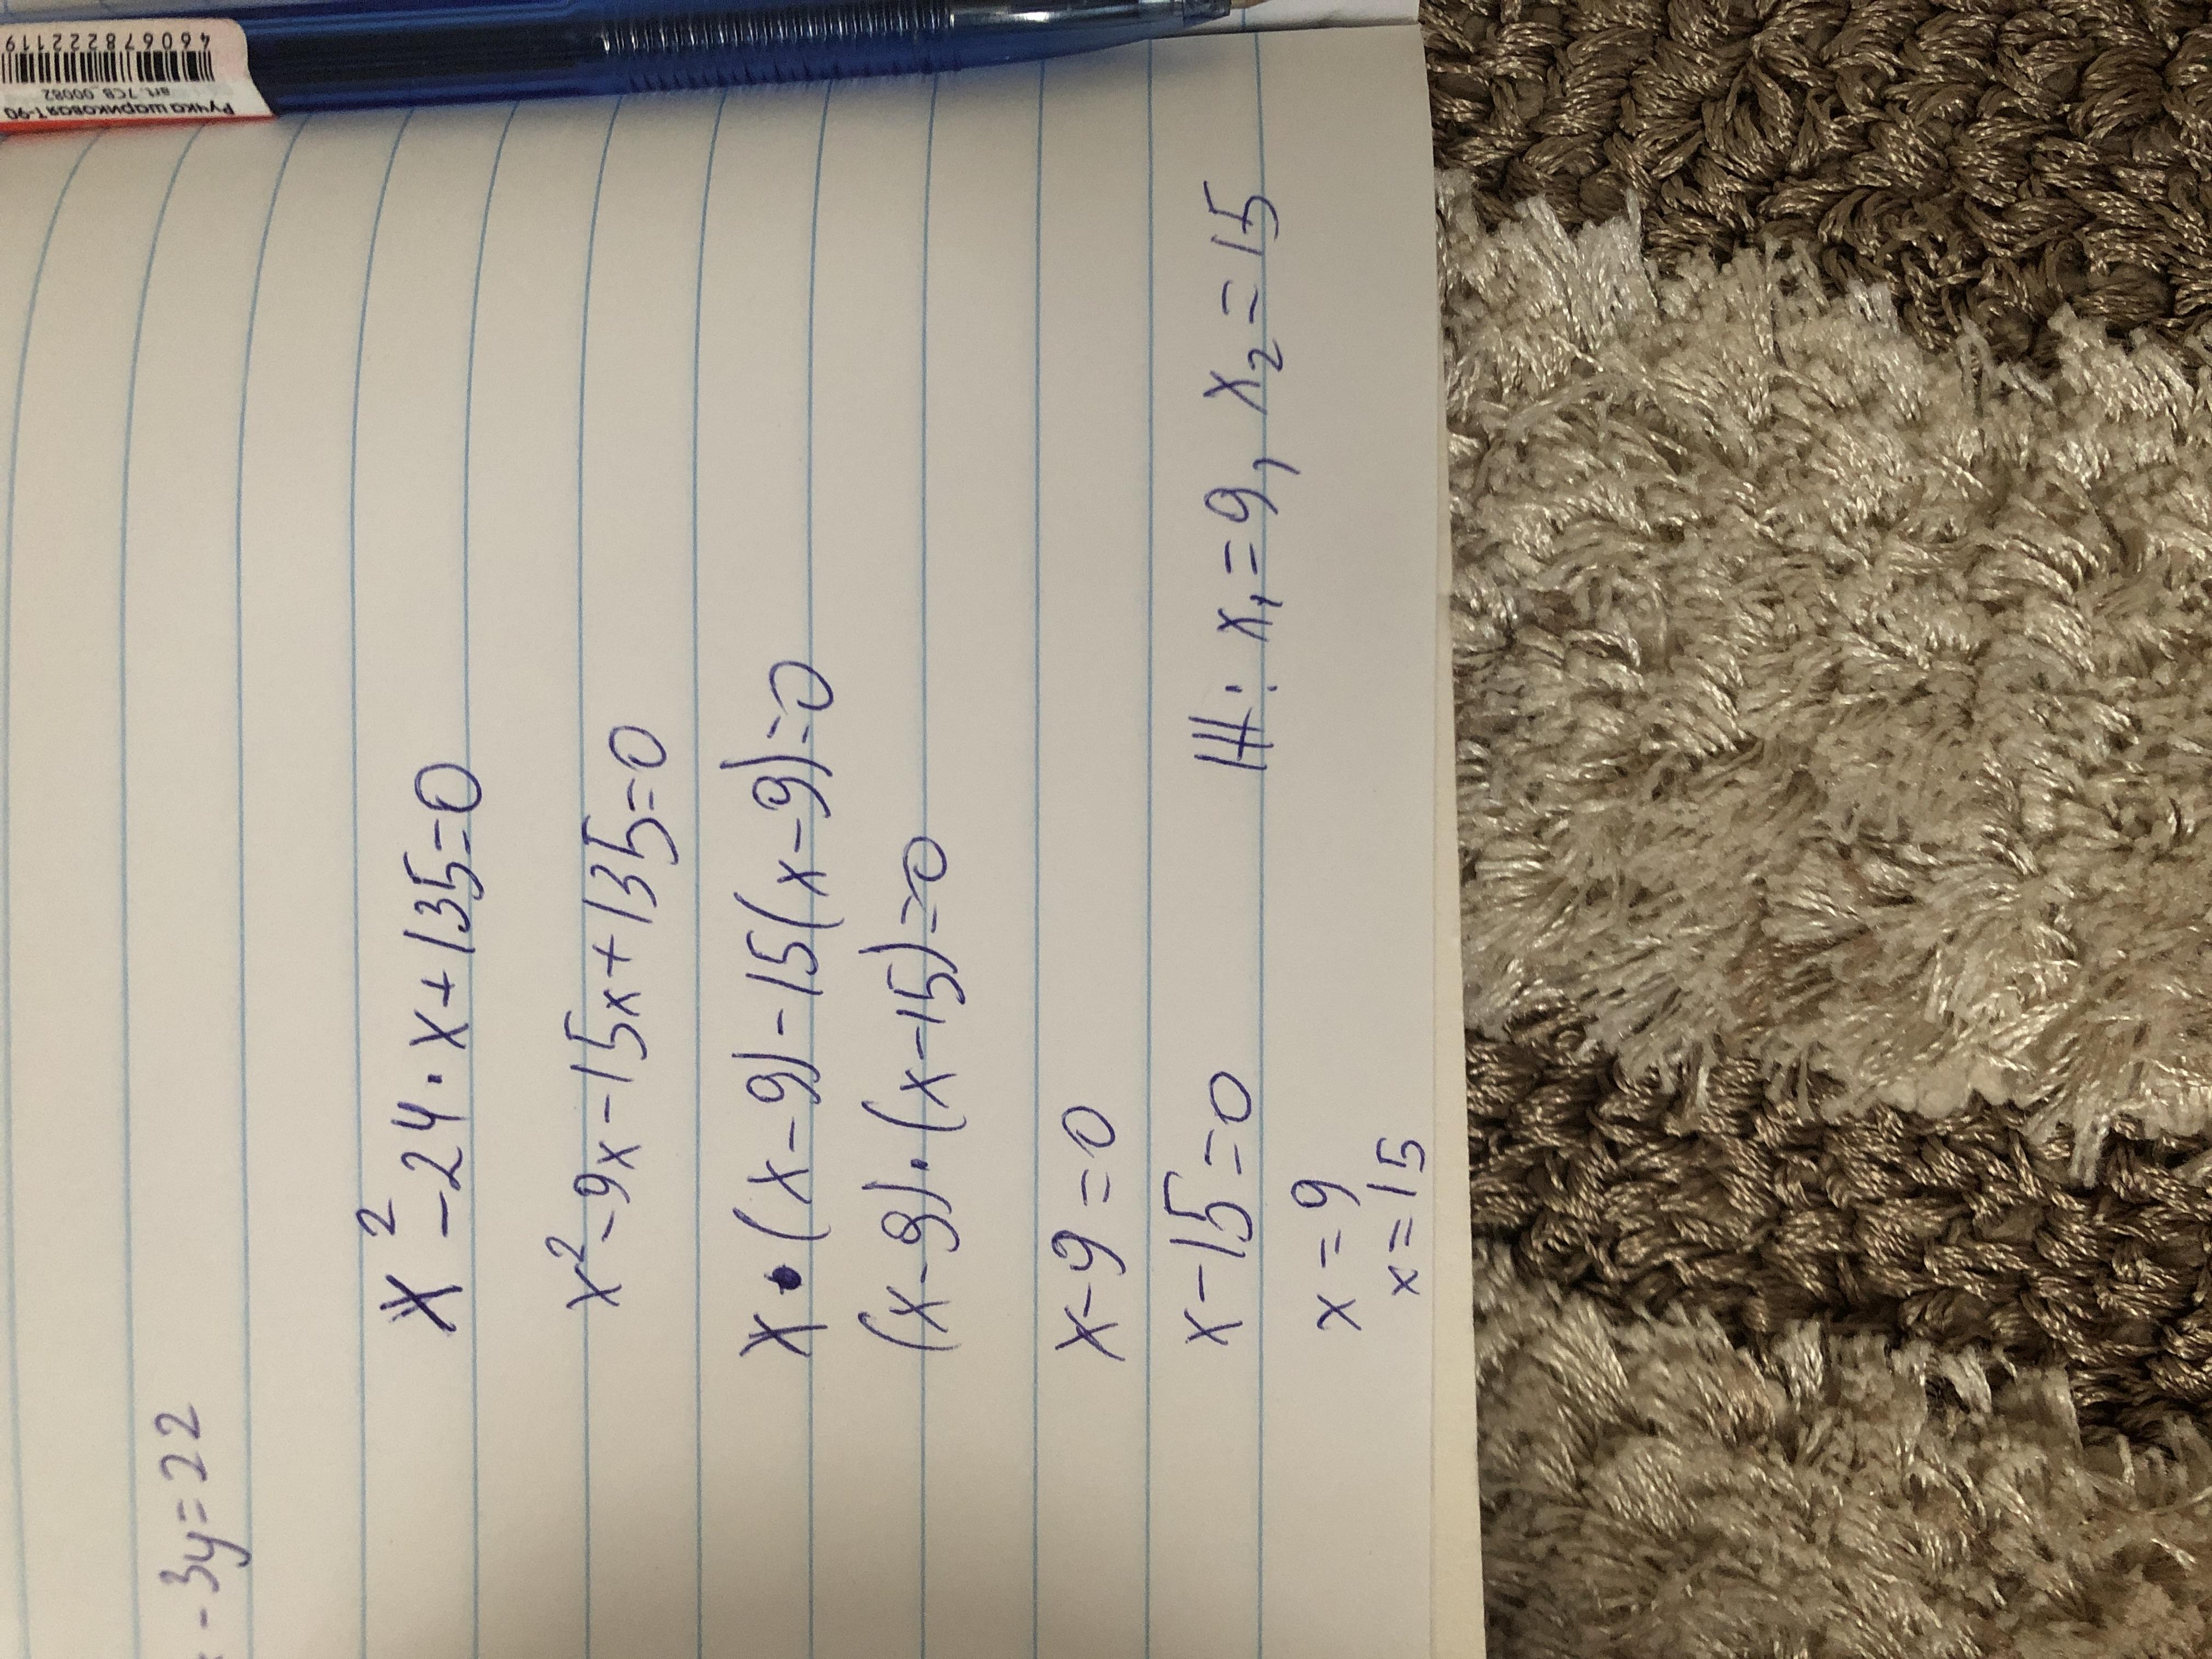 Ручка шариковая Т-90
art. 7СВ_00082
4606782221 19
- 3y = 22
x² - 24 · x + 135 = 0
x² - 9x - 15x + 135 = 0
x · (x - 9) - 15(x - 9) = 0
(x - 9) · (x - 15) = 0
x - 9 = 0
x - 15 = 0
: x₁ = 9, x₂ = 15
x = 9
x = 15